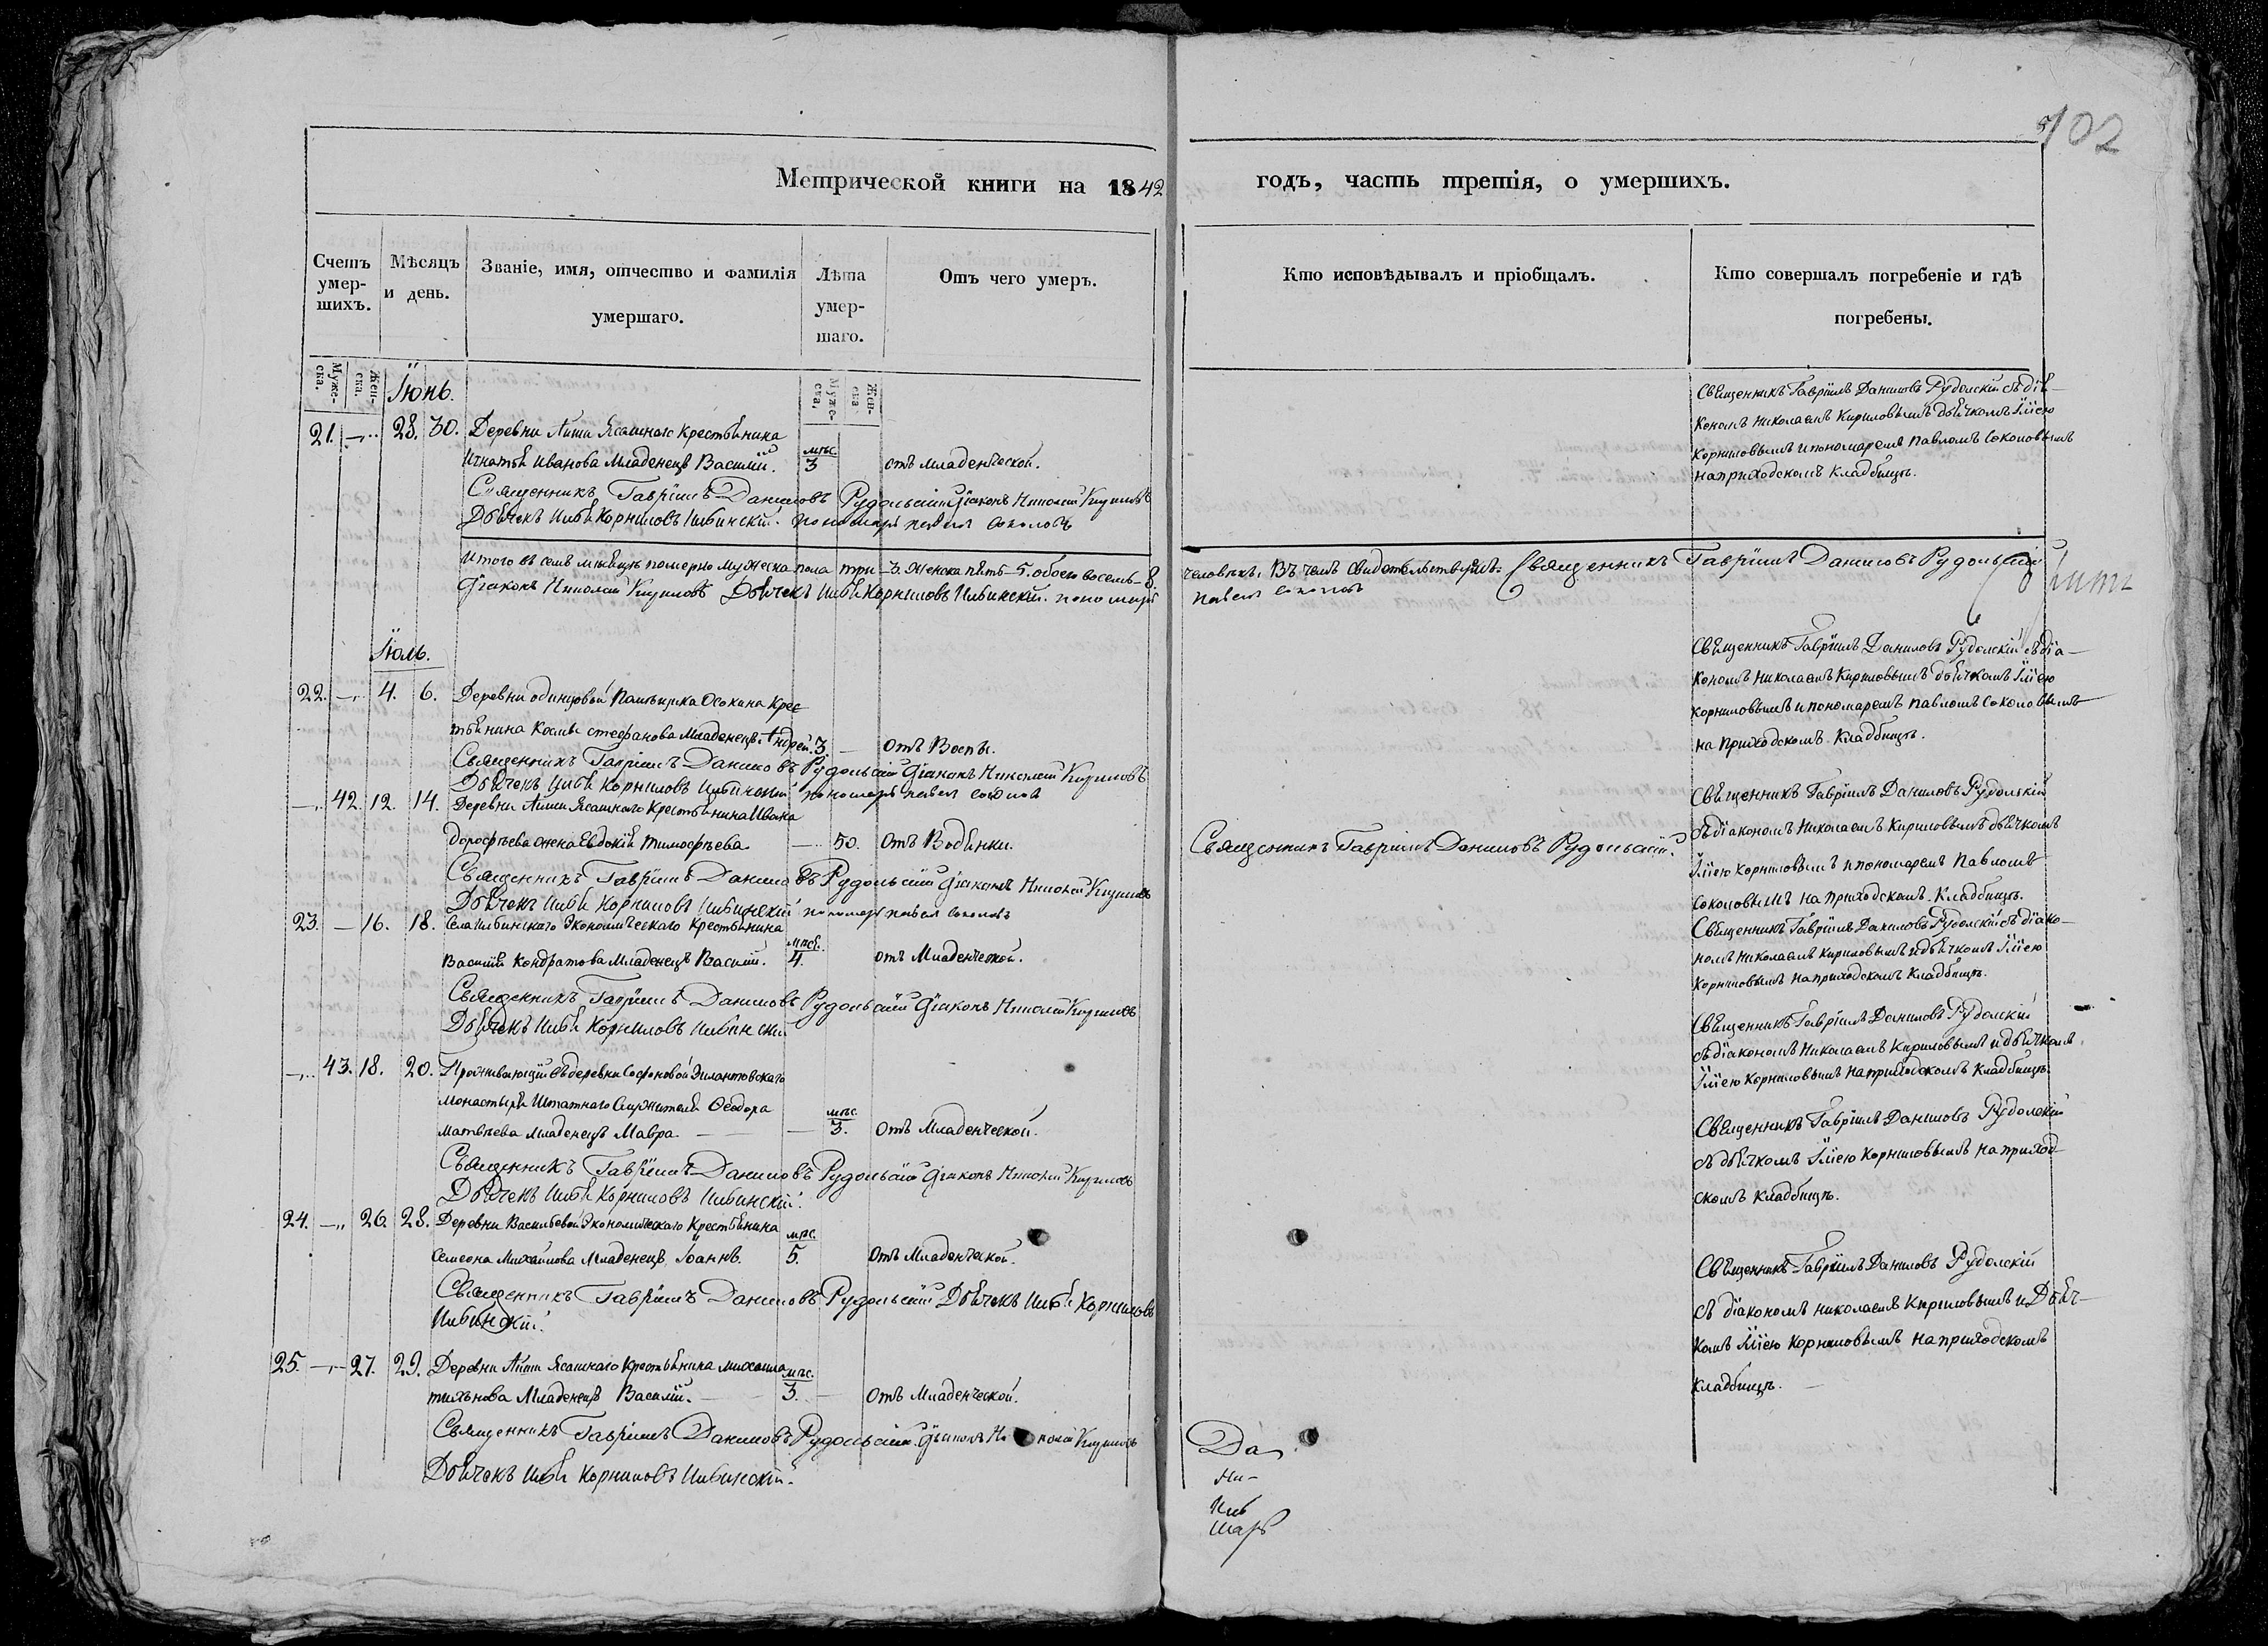 102
Метрической книги на 1842
годъ, часть третія, о умершихъ.
Счетъ умер-шихъ.
Мѣсяцъ и день.
Званіе, имя, отчество и фамилія умершаго.
Лѣта умер-шаго.
Отъ чего умеръ.
Кто исповѣдывалъ и пріобщалъ.
Кто совершалъ погребеніе и гдѣ погребены.
Муже-ска.
Жен-ска.
Муже-ска,
Жен-ска
Іюнь.
21. 28. 30. Деревни Ясашнаго крестьянина
Игнатья Иванова младенецъ Василій. мѣс. 3 отъ младенческой.
Священникъ Гавріилъ Даниловъ Рудольскій Діаконъ Николай Кириловъ
Дьячекъ Илья Корниловъ пономарь павелъ соколовъ
Священникъ Гавріилъ Даниловъ Рудолскій съ діа-
кономъ Николаемъ Кириловымъ дьячкомъ Іліею
Корниловымъ и пономаремъ Павломъ Соколовымъ
на приходскомъ кладбищѣ.
Итого въ семъ мѣсяцѣ померло мужеска пола три – 3. женска пять – 5. обоего восемь – 8.
человѣкъ. Въ чемъ свидетельствуемъ: Священникъ Гавріилъ Даниловъ Рудольскій
Діаконъ Николай Кириловъ Дьячекъ Илья Корниловъ пономарь
павелъ соколовъ
Іюль.
22. 4. 6. Деревни одинцовой Помѣщика Осокина крес
тьянина Космы стефанова младенецъ Андрей. 3. — Отъ Воспы.
Священникъ Гавріилъ Даниловъ Рудольскій Діаконъ Николай Кириловъ
Дьячекъ Илья Корниловъ пономарь павелъ соколовъ
Священникъ Гавріилъ Даниловъ Рудолскій съ діа-
кономъ Николаемъ Кириловымъ дьячкомъ Іліею
Корниловымъ и пономаремъ Павломъ Соколовымъ
на Приходскомъ Кладбищѣ.
42. 12. 14. Деревни Ясашнаго крестьянина Ивана
дорофѣева жена Евдокія Тимофѣева — 50. Отъ Водянки.
Священникъ Гавріилъ Даниловъ Рудольскій.
Священникъ Гавріилъ Даниловъ Рудольскій Діаконъ Николай Кириловъ
Дьячекъ Илья Корниловъ пономарь павелъ соколовъ
Священникъ Гавріилъ Даниловъ Рудолскій
съ діакономъ Николаемъ Кириловымъ дьячкомъ
Іліею Корниловымъ и пономаремъ Павломъ
Соколовымъ на Приходскомъ Кладбищѣ.
23. — 16. 18. Села Экономическаго Крестьянина
Василья Кондратова младенецъ Василій. мѣс. 4. отъ Младенческой.
Священникъ Гавріилъ Даниловъ Рудольскій Діаконъ Николай Кириловъ
Дьячекъ Илья Корниловъ
Священникъ Гавріилъ Даниловъ Рудолскій съ діако-
номъ Николаемъ Кириловымъ и дьячкомъ Іліею
Корниловымъ на приходскомъ кладбищѣ.
43. 18. 20. Проживающій въ деревни Зилантовскаго
Монастыря Штатнаго Служителя Ѳеодора
Матвѣева младенецъ Мавра. — — мѣс. 3. Отъ Младенческой.
Священникъ Гавріилъ Даниловъ Рудольскій Діаконъ Николай Кириловъ
Дьячекъ Илья Корниловъ
Священникъ Гавріилъ Даниловъ Рудолскій
съ діакономъ Николаемъ Кириловымъ и дьячкомъ
Іліею Корниловымъ на приходскомъ Кладбищѣ.
24. 26. 28. Деревни Васильевой Экономическаго Крестьянина
Семеона Михайлова младенецъ Іоаннъ. мѣс. 5. Отъ Младенческой.
Священникъ Гавріилъ Даниловъ Рудольскій Дьячекъ Илья Корниловъ
Священникъ Гавріилъ Даниловъ Рудолскій
съ дьячкомъ Іліею Корниловымъ на приход-
скомъ Кладбищѣ.
25. 27. 29. Деревни Ясашнаго Крестьянина Михаила
Младенецъ Василій. — мѣс. 3. — Отъ Младенческой.
Священникъ Гавріилъ Даниловъ Рудольскій Діаконъ Николай Кириловъ
Дьячекъ Илья Корниловъ
Священникъ Гавріилъ Даниловъ Рудолскій
съ діакономъ Николаемъ Кириловымъ и Дьяч-
комъ Іліею Корниловымъ на приходскомъ
Кладбищѣ. —
Да
Ни-